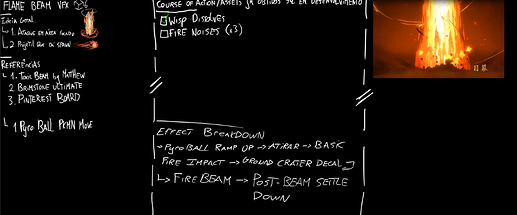 FLAME BEAM VFX
Ideia Geral
1. Ataque em área
2. Projétil que dá spawn
REFERÊNCIAS
1. Toxic BEAM by MATTHEW
2. BRIMSTONE ULTIMATE
3. PINTEREST BOARD
1 PYRO BALL PKMN MOVE
COURSE OF ACTION/ASSETS JA OBTIDOS OU EM DESENVOLVIMENTO
WISP DISSOLVES
FIRE NOISES (x3)
目界
EFFECT BREAKDOWN
→PYROBALL RAMP UP → ATIRAR → BASK
FIRE IMPACT → GROUND CRATER DECAL
↳ FIRE BEAM → POST-BEAM SETTLE
DOWN